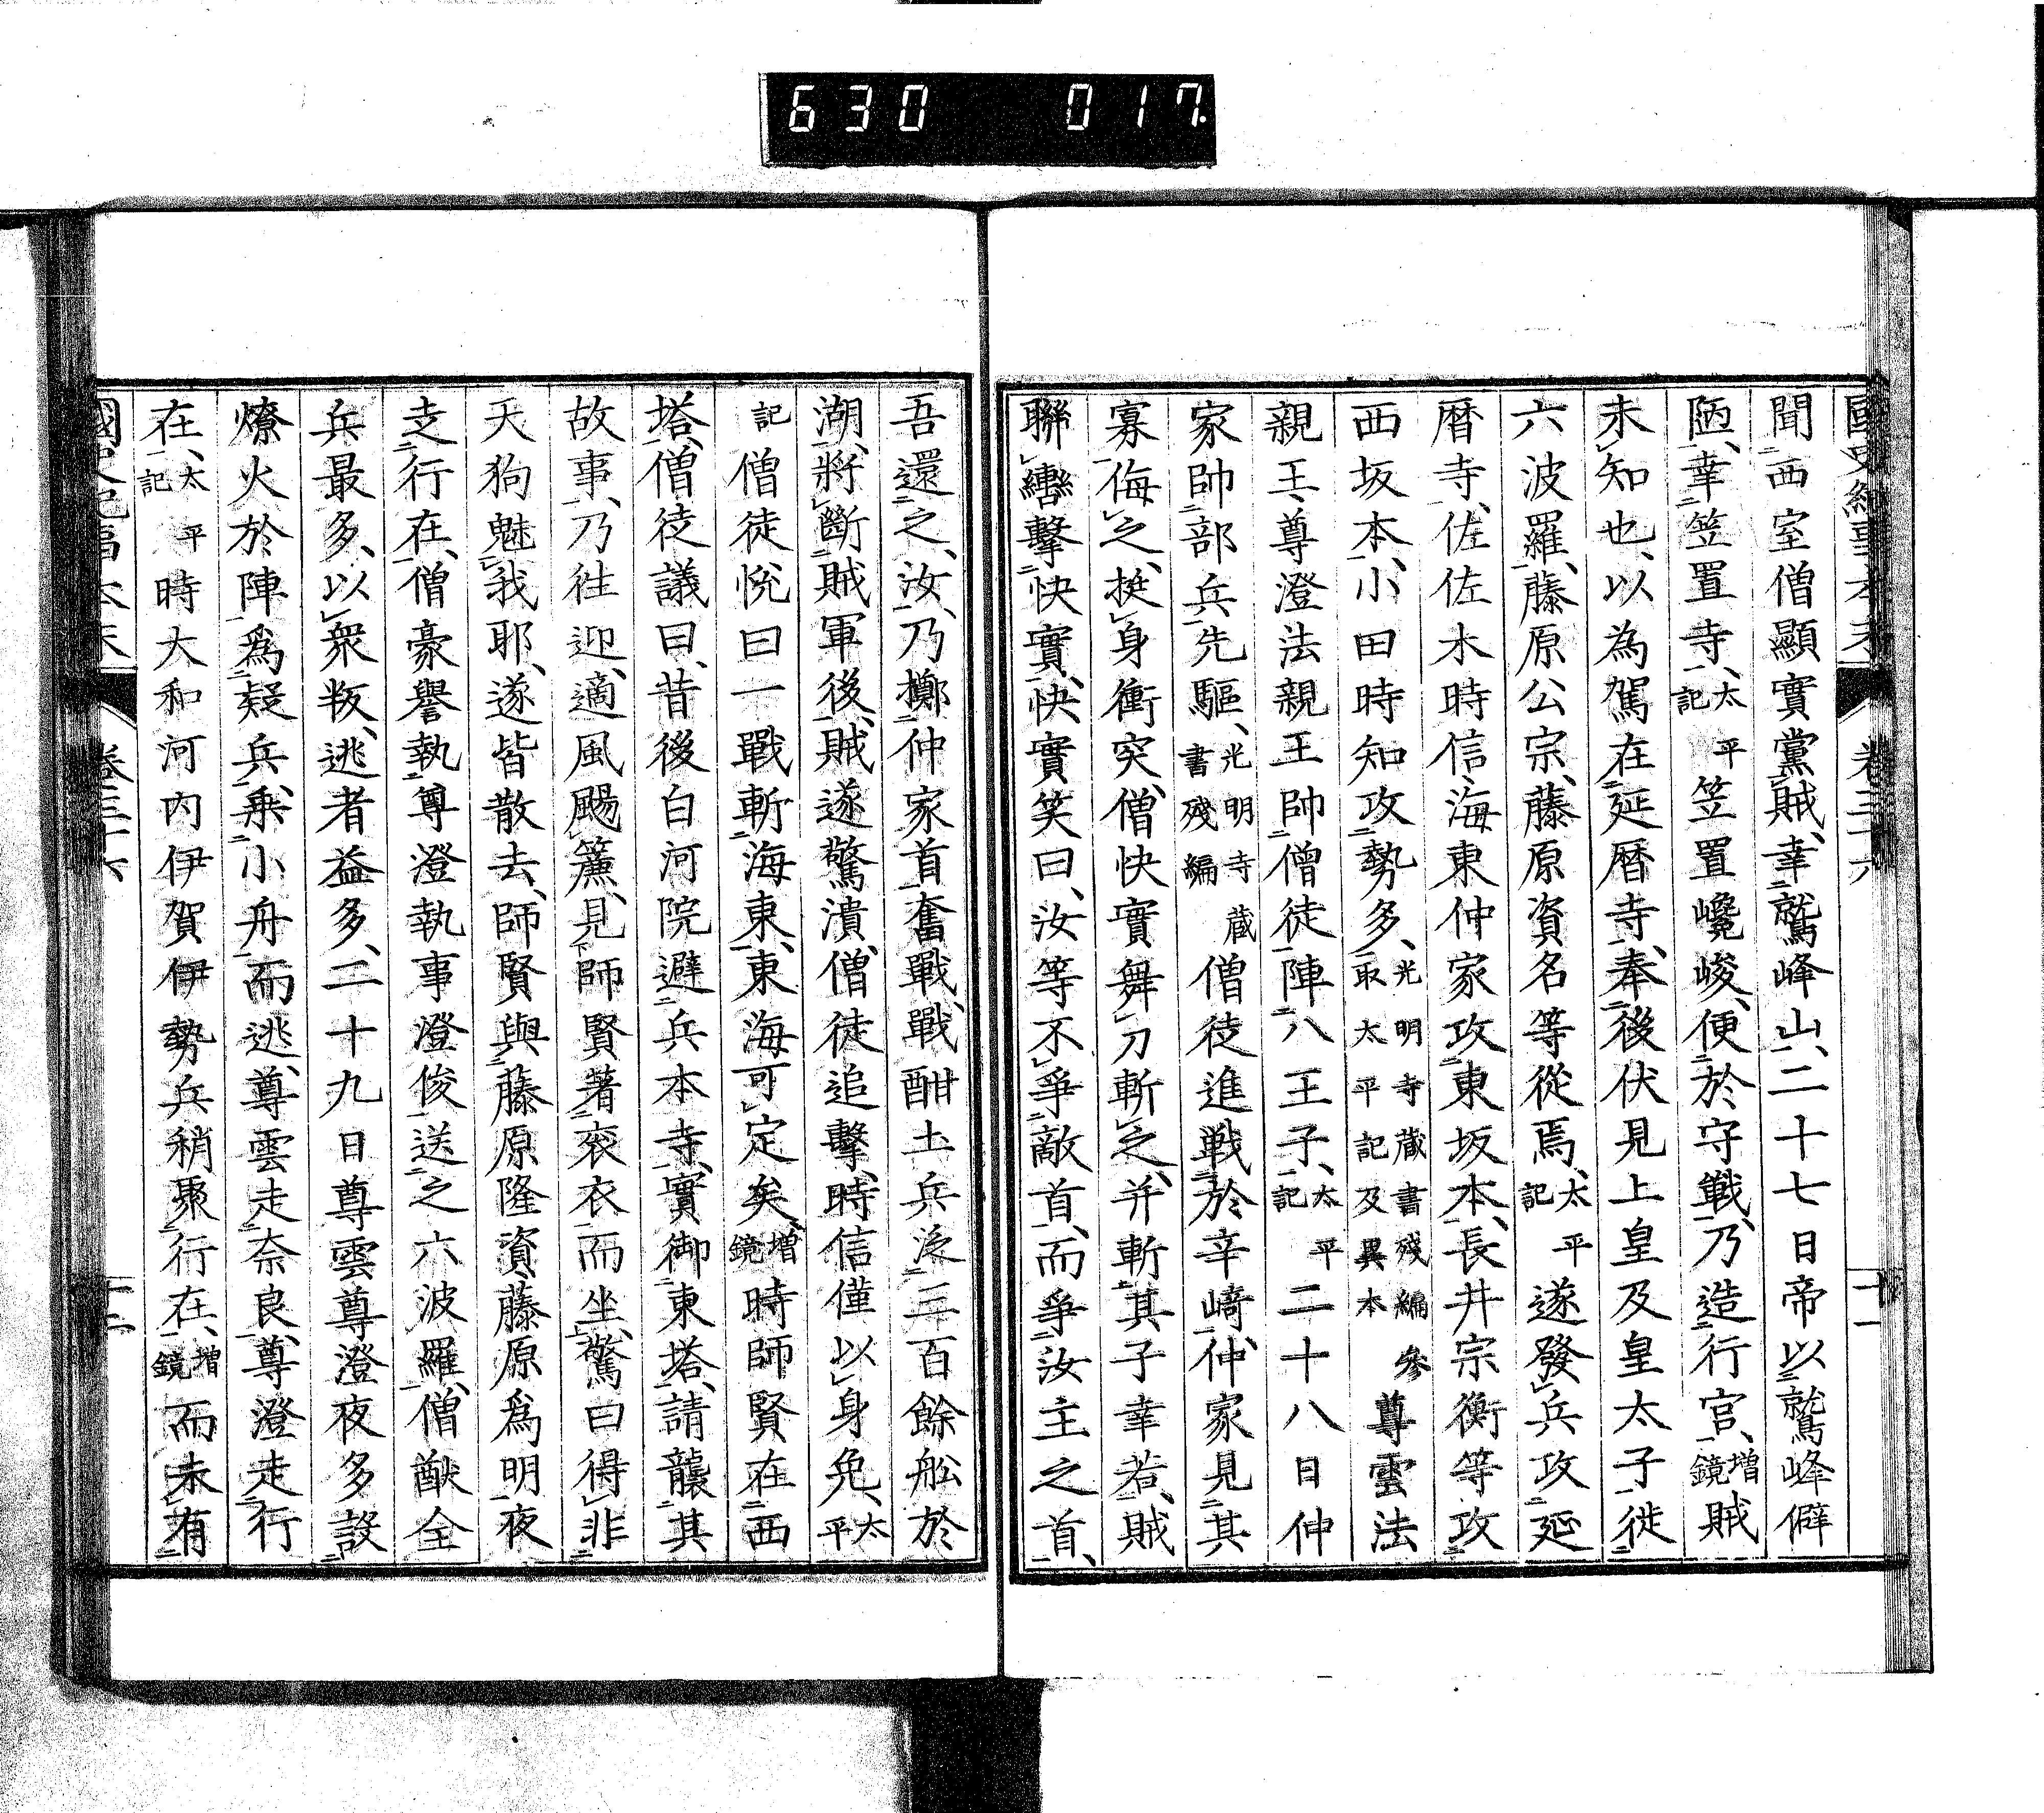 630 017.
國史紀事本末 卷三十六 十一
聞西室僧顯實黨賊、幸鷲峰山、二十七日帝以鷲峰僻
陋、幸笠置寺、太平記笠置巉峻、便於守戰、乃造行宮、增鏡賊
未知也、以為駕在延曆寺、奉後伏見上皇及皇太子徙
六波羅、藤原公宗、藤原資名等從焉、太平記遂發兵攻延
曆寺、佐佐木時信、海東仲家攻東坂本、長井宗衡等攻
西坂本、小田時知攻勢多、光明寺藏書殘編參取太平記及異本尊雲法
親王、尊澄法親王帥僧徒陣八王子、太平記二十八日仲
家帥部兵先驅、光明寺藏書殘編僧徒進戰於辛崎、仲家見其
寡侮之、挺身衝突、僧快實舞刀斬之、并斬其子幸若、賊
聯轡擊快實、快實笑曰、汝等不爭敵首、而爭汝主之首、
吾還之、汝、乃擲仲家首奮戰、戰酣土兵泛三百餘舩於
湖、將斷賊軍後、賊遂驚潰、僧徒追擊、時信僅以身免、太平
記僧徒悅曰一戰斬海東、東海可定矣、增鏡時師賢在西
塔、僧徒議曰、昔後白河院避兵本寺、實御東塔、請襲其
故事、乃往迎、適風颺簾、見師賢著袞衣而坐、驚曰得非
天狗魅我耶、遂皆散去、師賢與藤原隆資藤原爲明夜
走行在、僧豪譽執尊澄執事澄俊送之六波羅、僧猷全
兵最多、以衆叛、逃者益多、二十九日尊雲尊澄夜多設
燎火於陣、爲疑兵、乘小舟而逃、尊雲走奈良、尊澄走行
在、太平記時大和河內伊賀伊勢兵稍聚行在、增鏡而未有
國史紀事本末 卷三十六 十二